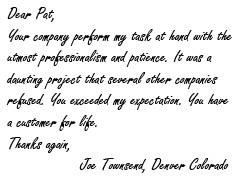 Dear Pat,
Your company perform my task at hand with the
utmost professionalism and patience. It was a
daunting project that several other companies
refused. You exceeded my expectation. You have
a customer for life.
Thanks again,
Joe Townsend, Denver Colorado